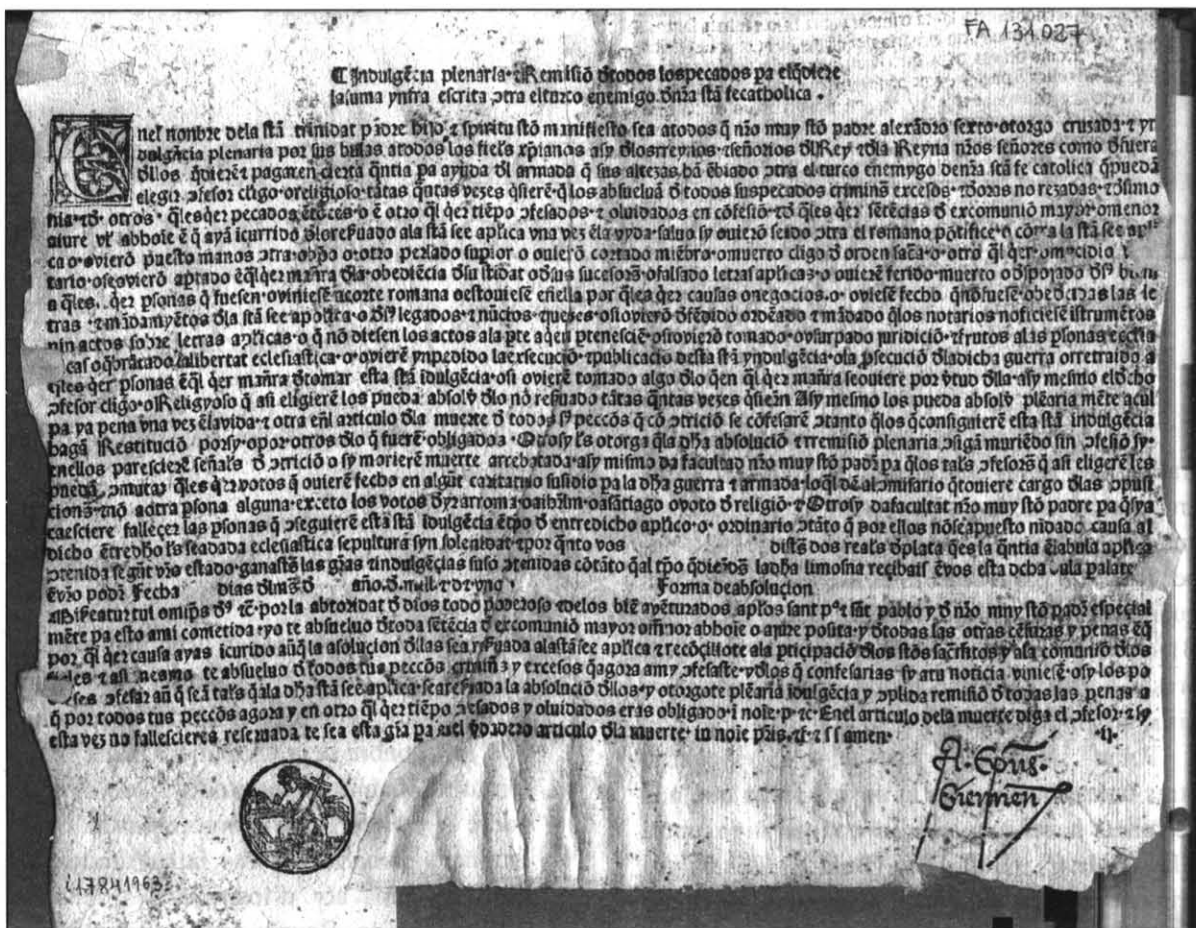 FA 131027
☾ Indulgẽcia plenaria · ⁊ Remisiõ d̃todos los pecados pa el q̃ diere
la suma ynfra escrita ↄtra el turco enemigo d̃ nr̃a stã fe catholica .
Enel nonbre dela stã trinidat padre hijo ⁊ spiritu stõ manifiesto sea atodos q̃ nr̃o muy stõ padre alexãdro sexto · otorgo cruzada · ⁊ yn
dulgẽcia plenaria por sus bulas atodos los fiels xp̃ianos asy d̃los rreynos · ⁊ señorios d̃l Rey ⁊ d̃la Reyna nr̃os señores como d̃ fuera
d̃llos q̃ dierẽ ⁊ pagarẽ cierta q̃ntia pa ayuda d̃l armada q̃ sus altezas hã ẽbiado ↄtra el turco enemygo de nr̃a stã fe catolica q̃ puedã
elegir ↄfesor cl̃igo o religioso · tãtas q̃ntas vezes q̃sierẽ · q̃ los absueluã d̃ todos sus pecados criminẽs excesos · ⁊ d̃ oras no rezadas · ⁊ d̃ simo
nia · ⁊ d̃ otros · q̃les q̃er pecados ẽtõces · o ẽ otro q̃l q̃er tiẽpo ↄfesados · ⁊ oluidados en cõfesiõ · ⁊ d̃ q̃les q̃er sẽtẽcias d̃ excomuniõ mayor · o menor
a iure vl̃ ab hoĩe ẽ q̃ ayã icurrido d̃lo reseruado ala stã see ap̃lica vna vez ẽla vyda · saluo sy ouierõ seido ↄtra el romano põtifice · o cõtra la stã see ap̃l
ca o ovierõ puesto manos ↄtra · ob̃po o otro perlado supior o ouierõ cortado miẽbro · o muerto cl̃igo d̃ orden sac̃a · o otro q̃l q̃er · omecidio
tario · o se ovierõ aptado ẽ q̃l q̃er mañra d̃la · obediẽcia d̃ su stidat o d̃ sus sucesorẽs · o falsado letras ap̃licas · o ouierẽ ferido · muerto o d̃spojado d̃ sꝰ
a q̃les q̃er p̃sonas q̃ fuesen · o viniesẽ a corte romana o estouiesẽ enella por q̃les q̃er causas o negocios · o oviesẽ fecho q̃ nõ fuesẽ · obedecidas las le
tras · ⁊ mãdamyẽtos d̃la stã see apolica · o d̃ sꝰ legados · ⁊ nũcios · o si ovierõ d̃fẽdido ordẽado ⁊ mãdado q̃ los notarios no ficiesẽ istrumẽtos
nin actos sobre letras ap̃licas · o q̃ nõ diesen los actos ala pte aq̃en ptenesciẽ · o si ovierõ tomado · o vsurpado juridiciõ · ⁊ frutos alas p̃sonas ecc̃lia
cas o q̃bratado la libertat eclesiastica · o ovierẽ ynpedido la exsecuciõ · ⁊ publicaciõ desta stã yndulgẽcia · o la ↄsecuciõ d̃la dicha guerra o rretraido a
q̃les q̃er p̃sonas ẽ q̃l q̃er mañra d̃ tomar esta stã idulgẽcia · o si ovierẽ tomado algo d̃lo q̃ en q̃l q̃er mañra se ouiere por v̾tud d̃lla · asy mesmo el dicho
ↄfesor cl̃igo · o Religyoso q̃ asi eligierẽ los pueda absolv̾ d̃lo nõ reseruado tãtas q̃ntas vezes q̃sierẽ Asy mesmo los pueda absolv̾ plẽaria mẽte a cul
pa y a pena vna vez ẽla vida · ⁊ otra enl̃ articulo d̃la muerte d̃ todos sꝰ peccõs q̃ cõ ↄtriciõ se cõfesarẽ ↄtanto q̃ los q̃ ↄsiguierẽ esta stã indulgẽcia
hagã Restituciõ por sy · o por otros d̃lo q̃ fuerẽ · obligados · Otrosy l̃es otorga q̃ la dh̃a absoluciõ ⁊ rremisiõ plenaria ↄsigã muriẽdo sin ↄfesiõ sy ·
enellos parescierẽ señal̃es d̃ ↄtriciõ o sy morierẽ muerte arrebatada · asy mismo da facultad nr̃o muy stõ padr̃ pa q̃ los tal̃es ↄfesorẽs q̃ asi eligerẽ les
puedã · ↄmutar q̃les q̃er votos q̃ ouierẽ fecho en algũt caritatiuo susidio pa la dh̃a guerra ⁊ armada · lo q̃l dẽ al comisario q̃ touiere cargo d̃las ↄpusi
cionẽs · ⁊ nõ a otra p̃sona alguna · exceto los votos d̃ yr a rroma · o a ih̃rlm̃ · o a sãtiago o voto d̃ religiõ · ⁊ Otrosy da facultat nr̃o muy stõ padre pa q̃ sy a
caesciere falleçer las p̃sonas q̃ ↄseguierẽ esta stã idulgẽcia ẽ tp̃o d̃ entredicho ap̃lico · o · ordinario ↄtãto q̃ por ellos nõ se aya puesto ni dado causa al
dicho ẽtredicho l̃es sea dada eclesiastica sepultura syn solenidat · ⁊ por q̃nto vos distẽs dos real̃es d̃ plata q̃es la q̃ntia ẽla bula ap̃lica
ↄtenida segũt vr̃o estado · ganastẽs las gr̃as ⁊ indulgẽcias suso ↄtenidas cõtãto q̃ al tp̃o q̃ dierd̃es la dh̃a limosna recibais ẽ vos esta dicha bula
ẽ vr̃o podr̃ Fecha dias d̃l mẽs d̃ año · d̃ mill · ⁊ d · ⁊ vno · Forma de absolucion
Misereatur tui omip̃s dꝰ ⁊c̃ · por la abtoridat d̃ dios todo poderoso ⁊ delos biẽ avẽturados aplos sant pº ⁊ sãt pablo y d̃ nr̃o muy stõ padr̃ especial
mẽte pa esto a mi cometida · yo te absueluo d̃ toda sẽtẽcia d̃ excomuniõ mayor o mẽnor ab hoĩe o a jure posita · y d̃ todas las otras cẽsuras y penas ẽ q̃
por q̃l q̃er causa ayas icurido aũ q̃ la asolucion d̃llas sea reseruada ala stã see ap̃lica ⁊ recõcilio te ala pticipaciõ d̃los stõs sacr̃mẽtos y ala comuniõ d̃los
fieles ⁊ asi mesmo te absueluo d̃ todos tus peccõs crimiñs y excesos q̃ agora a my ↄfesaste · y d̃los q̃ confesarias sy a tu noticia viniesẽ · o sy los po
dieses ↄfesar aũ q̃ seã tal̃es q̃ ala dh̃a stã see ap̃lica · sea reseruada la absoluciõ d̃llos · y otorgo te plẽaria idulgẽcia y ↄplida remisiõ d̃ todas las penas a
q̃ por todos tus peccõs agora y en otro q̃l q̃er tiẽpo ↄfesados y oluidados eras obligado · i noĩe · p · ⁊c · Enel articulo dela muerte diga el ↄfesor · ⁊ sy
esta vez no fallescieres reseruada te sea esta gr̃a pa enel v̾dadero articulo d̃la muerte · in noĩe pr̃is · ⁊ f · ⁊ s s amen ·
A · Epũs ·
Giennen
i17841963